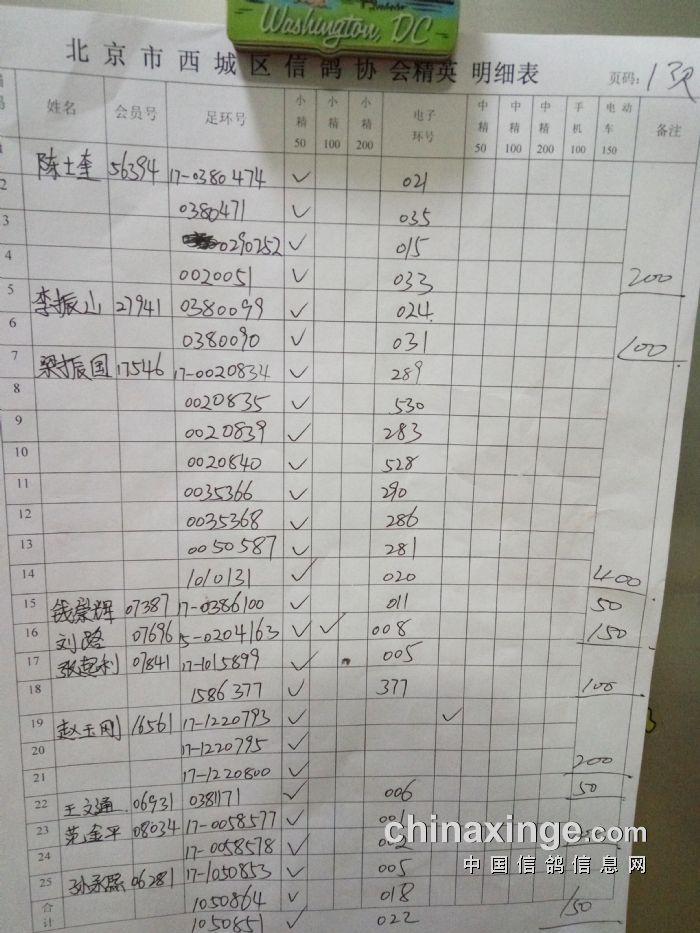 Washington, DC
北京市西城区信鸽协会精英 明细表
页码: 1页
姓名 会员号 足环号 小精50 小精100 小精200 电子环号 中精50 中精100 中精200 手机100 电动车150 备注
陈士奎 56394 17-0380474 ✓ 021
2 0380471 ✓ 035
3 0290252 ✓ 015
4 0020051 ✓ 033 200
5 李振山 27941 0380099 ✓ 024
6 0380090 ✓ 031 100
7 梁振国 17546 17-0020834 ✓ 289
8 0020835 ✓ 530
9 0020839 ✓ 283
10 0020840 ✓ 528
11 0035366 ✓ 290
12 0035368 ✓ 286
13 0050587 ✓ 281
14 1010131 ✓ 020 400
15 钱崇辉 07387 17-0386100 ✓ 011 50
16 刘路 07696 5-0204163 ✓ ✓ 008 150
17 张起利 07841 17-1015899 ✓ 005
18 1586377 ✓ 377 100
19 赵玉刚 16561 17-1220793 ✓ ✓
20 17-1220795 ✓
21 17-1220800 ✓ 200
22 王文通 06931 0381171 ✓ 006 50
23 范金平 08034 17-0058577 ✓ 001
24 17-0058578 ✓ 002
25 孙永 06281 17-1050853 ✓ 005
合计 1050864 ✓ 018 150
1050851 ✓ 022
chinaxinge.com
中国信鸽信息网